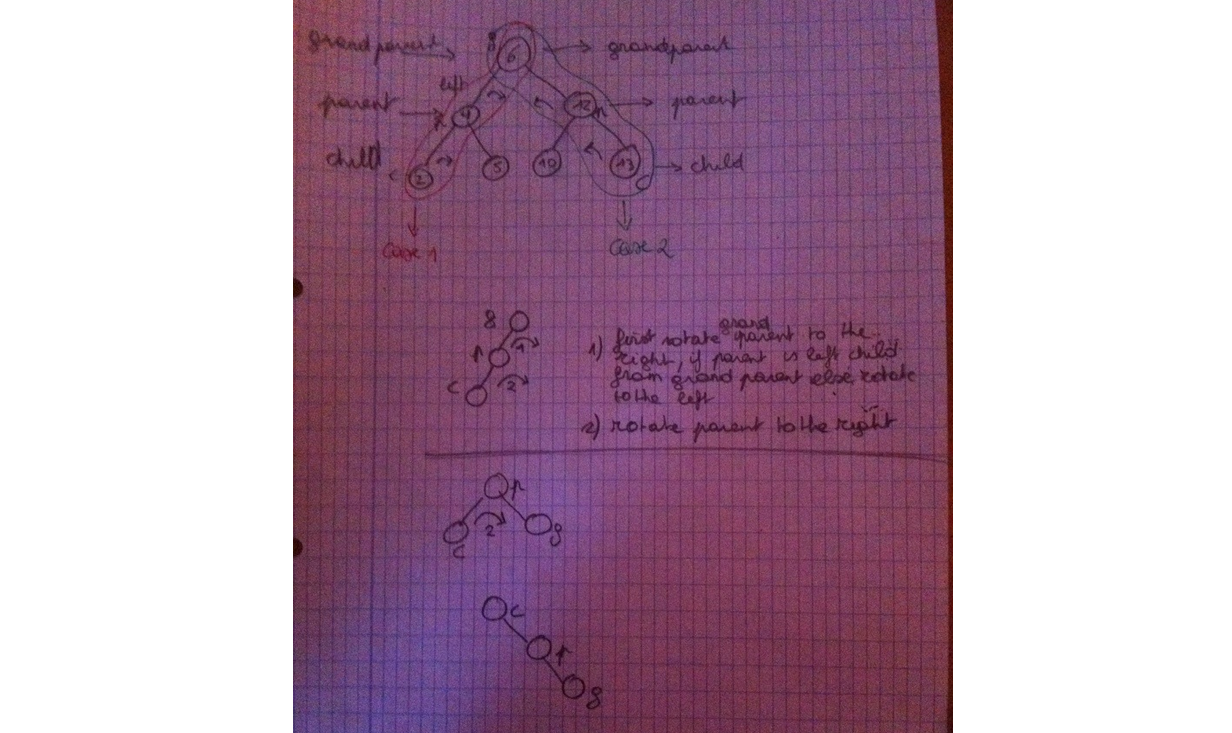 grandparent
g
6
grandparent
left
parent
p
4
12
p
parent
child
c
2
5
10
13
c
child
Case 1
Case 2
g
p
1
c
2
1) first rotate grandparent to the
right, if parent is left child
from grand parent else rotate
to the left
2) rotate parent to the right
p
c
2
g
c
p
g